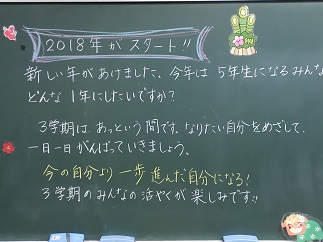 2018年がスタート!!
新しい年があけました。今年は5年生になるみんな。
どんな1年にしたいですか?
3学期はあっという間です。なりたい自分をめざして、
一日一日がんばっていきましょう。
今の自分より一歩進んだ自分になる!
3学期のみんなの活やくが楽しみです!!